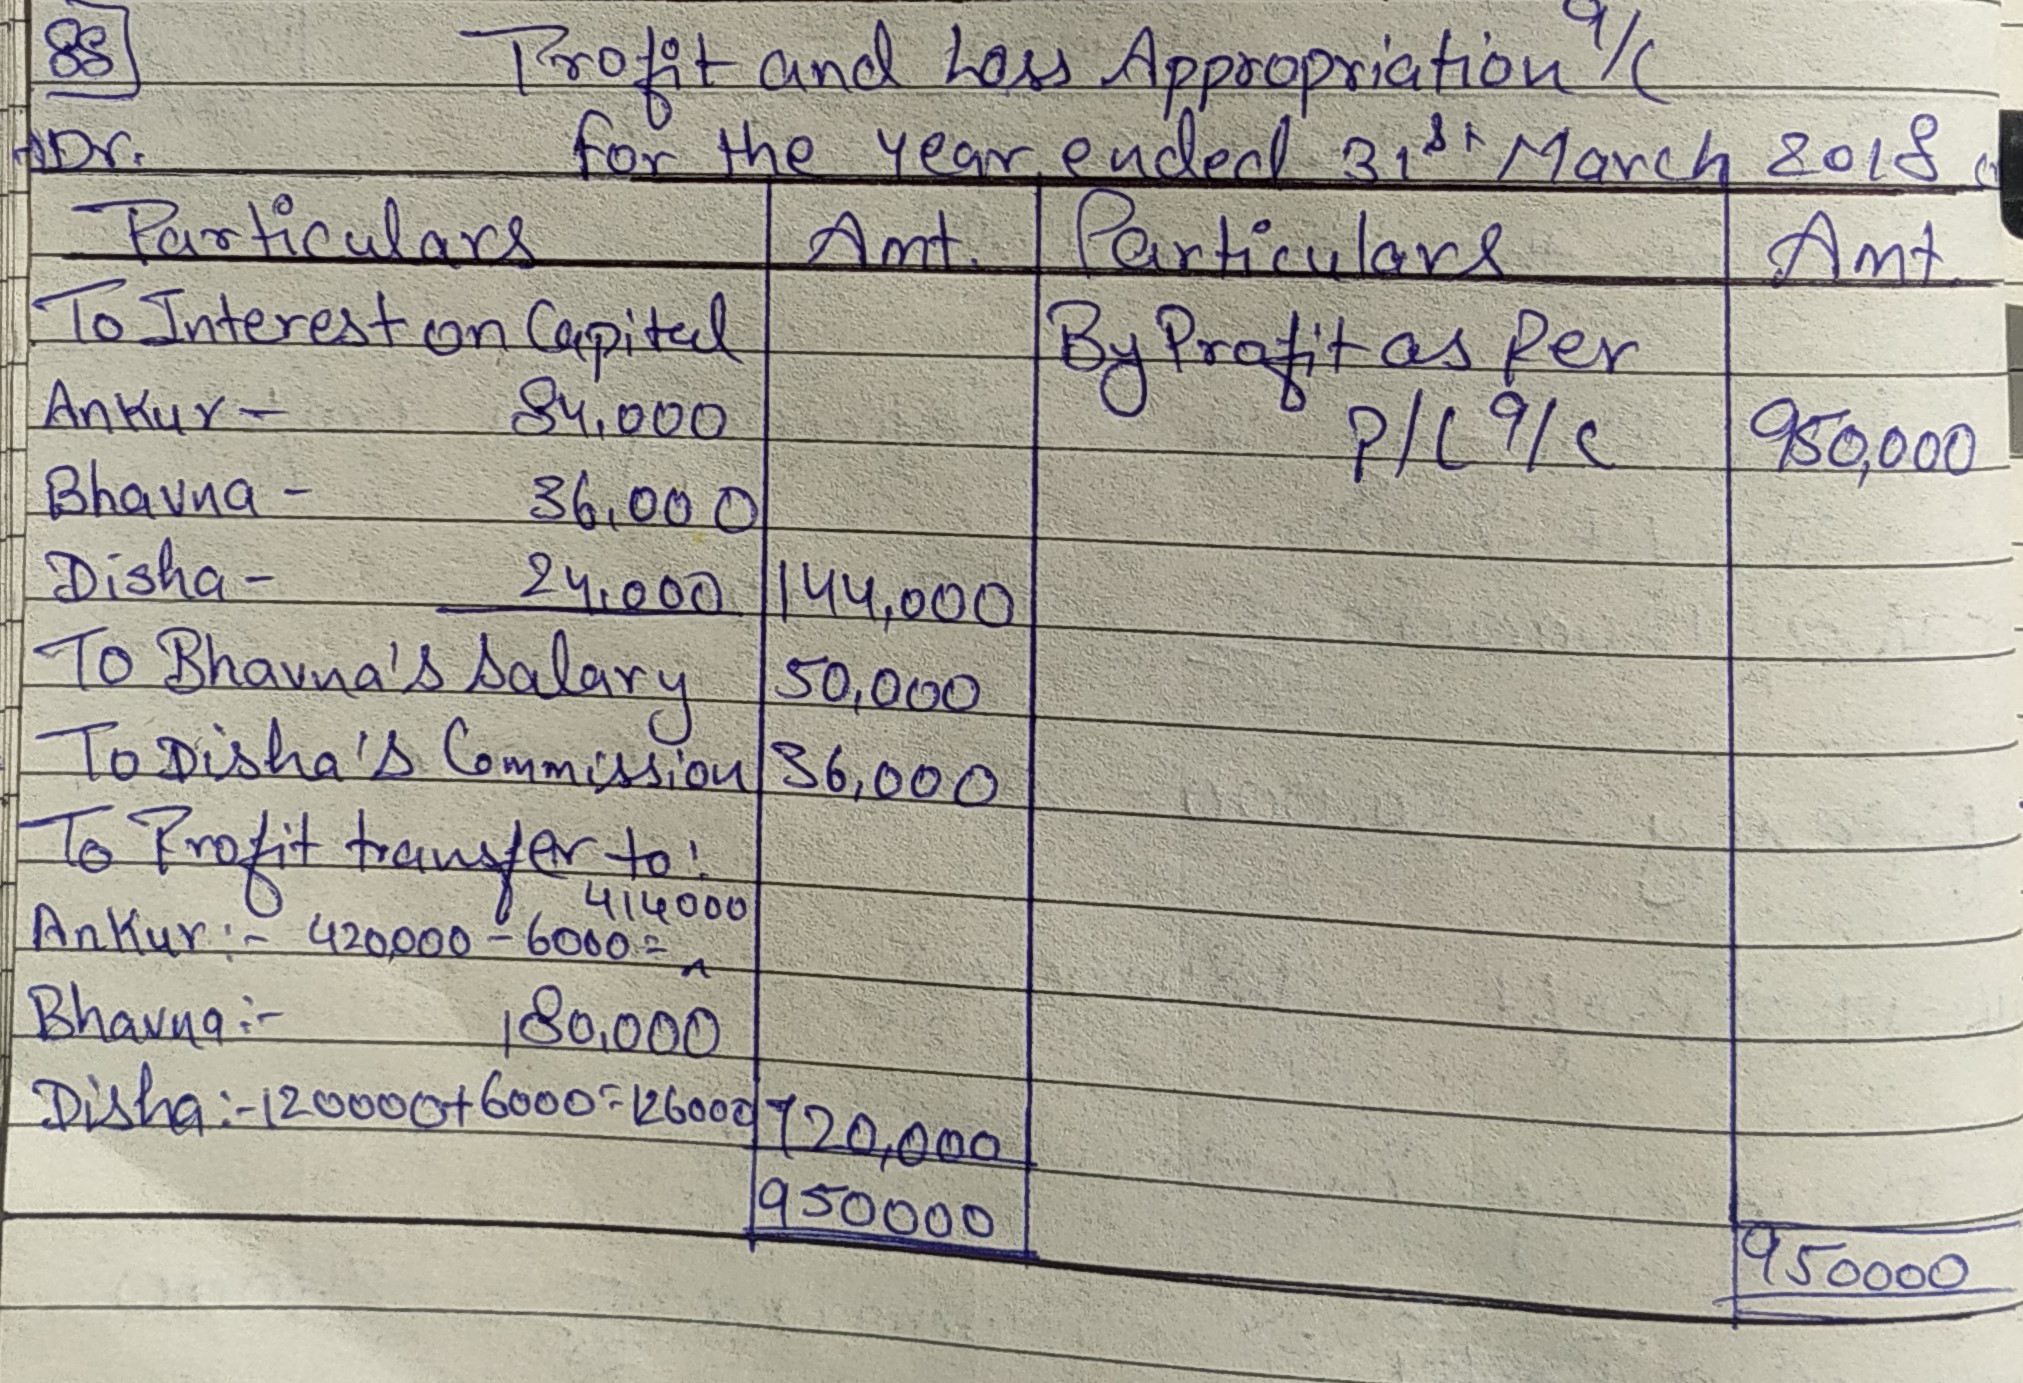 88
Profit and Loss Appropriation a/c
Dr. for the year ended 31st March 2018
Particulars Amt. Particulars Amt.
To Interest on Capital By Profit as Per
Ankur - 84,000 P/L a/c 950,000
Bhavna - 36,000
Disha - 24,000 144,000
To Bhavna's Salary 50,000
To Disha's Commission 36,000
To Profit transfer to:
Ankur:- 420,000 - 6000 = 414000
Bhavna:- 180,000
Disha:- 120000 + 6000 = 126000 720,000
950000 950000